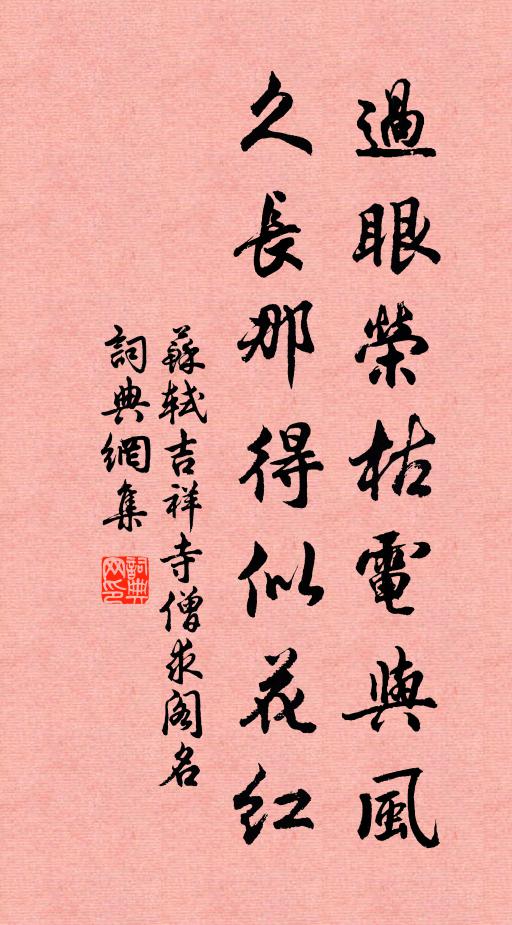 過眼榮枯電與風
久長那得似花紅
蘇軾吉祥寺僧求阁名
詞典網集
詞典
网印